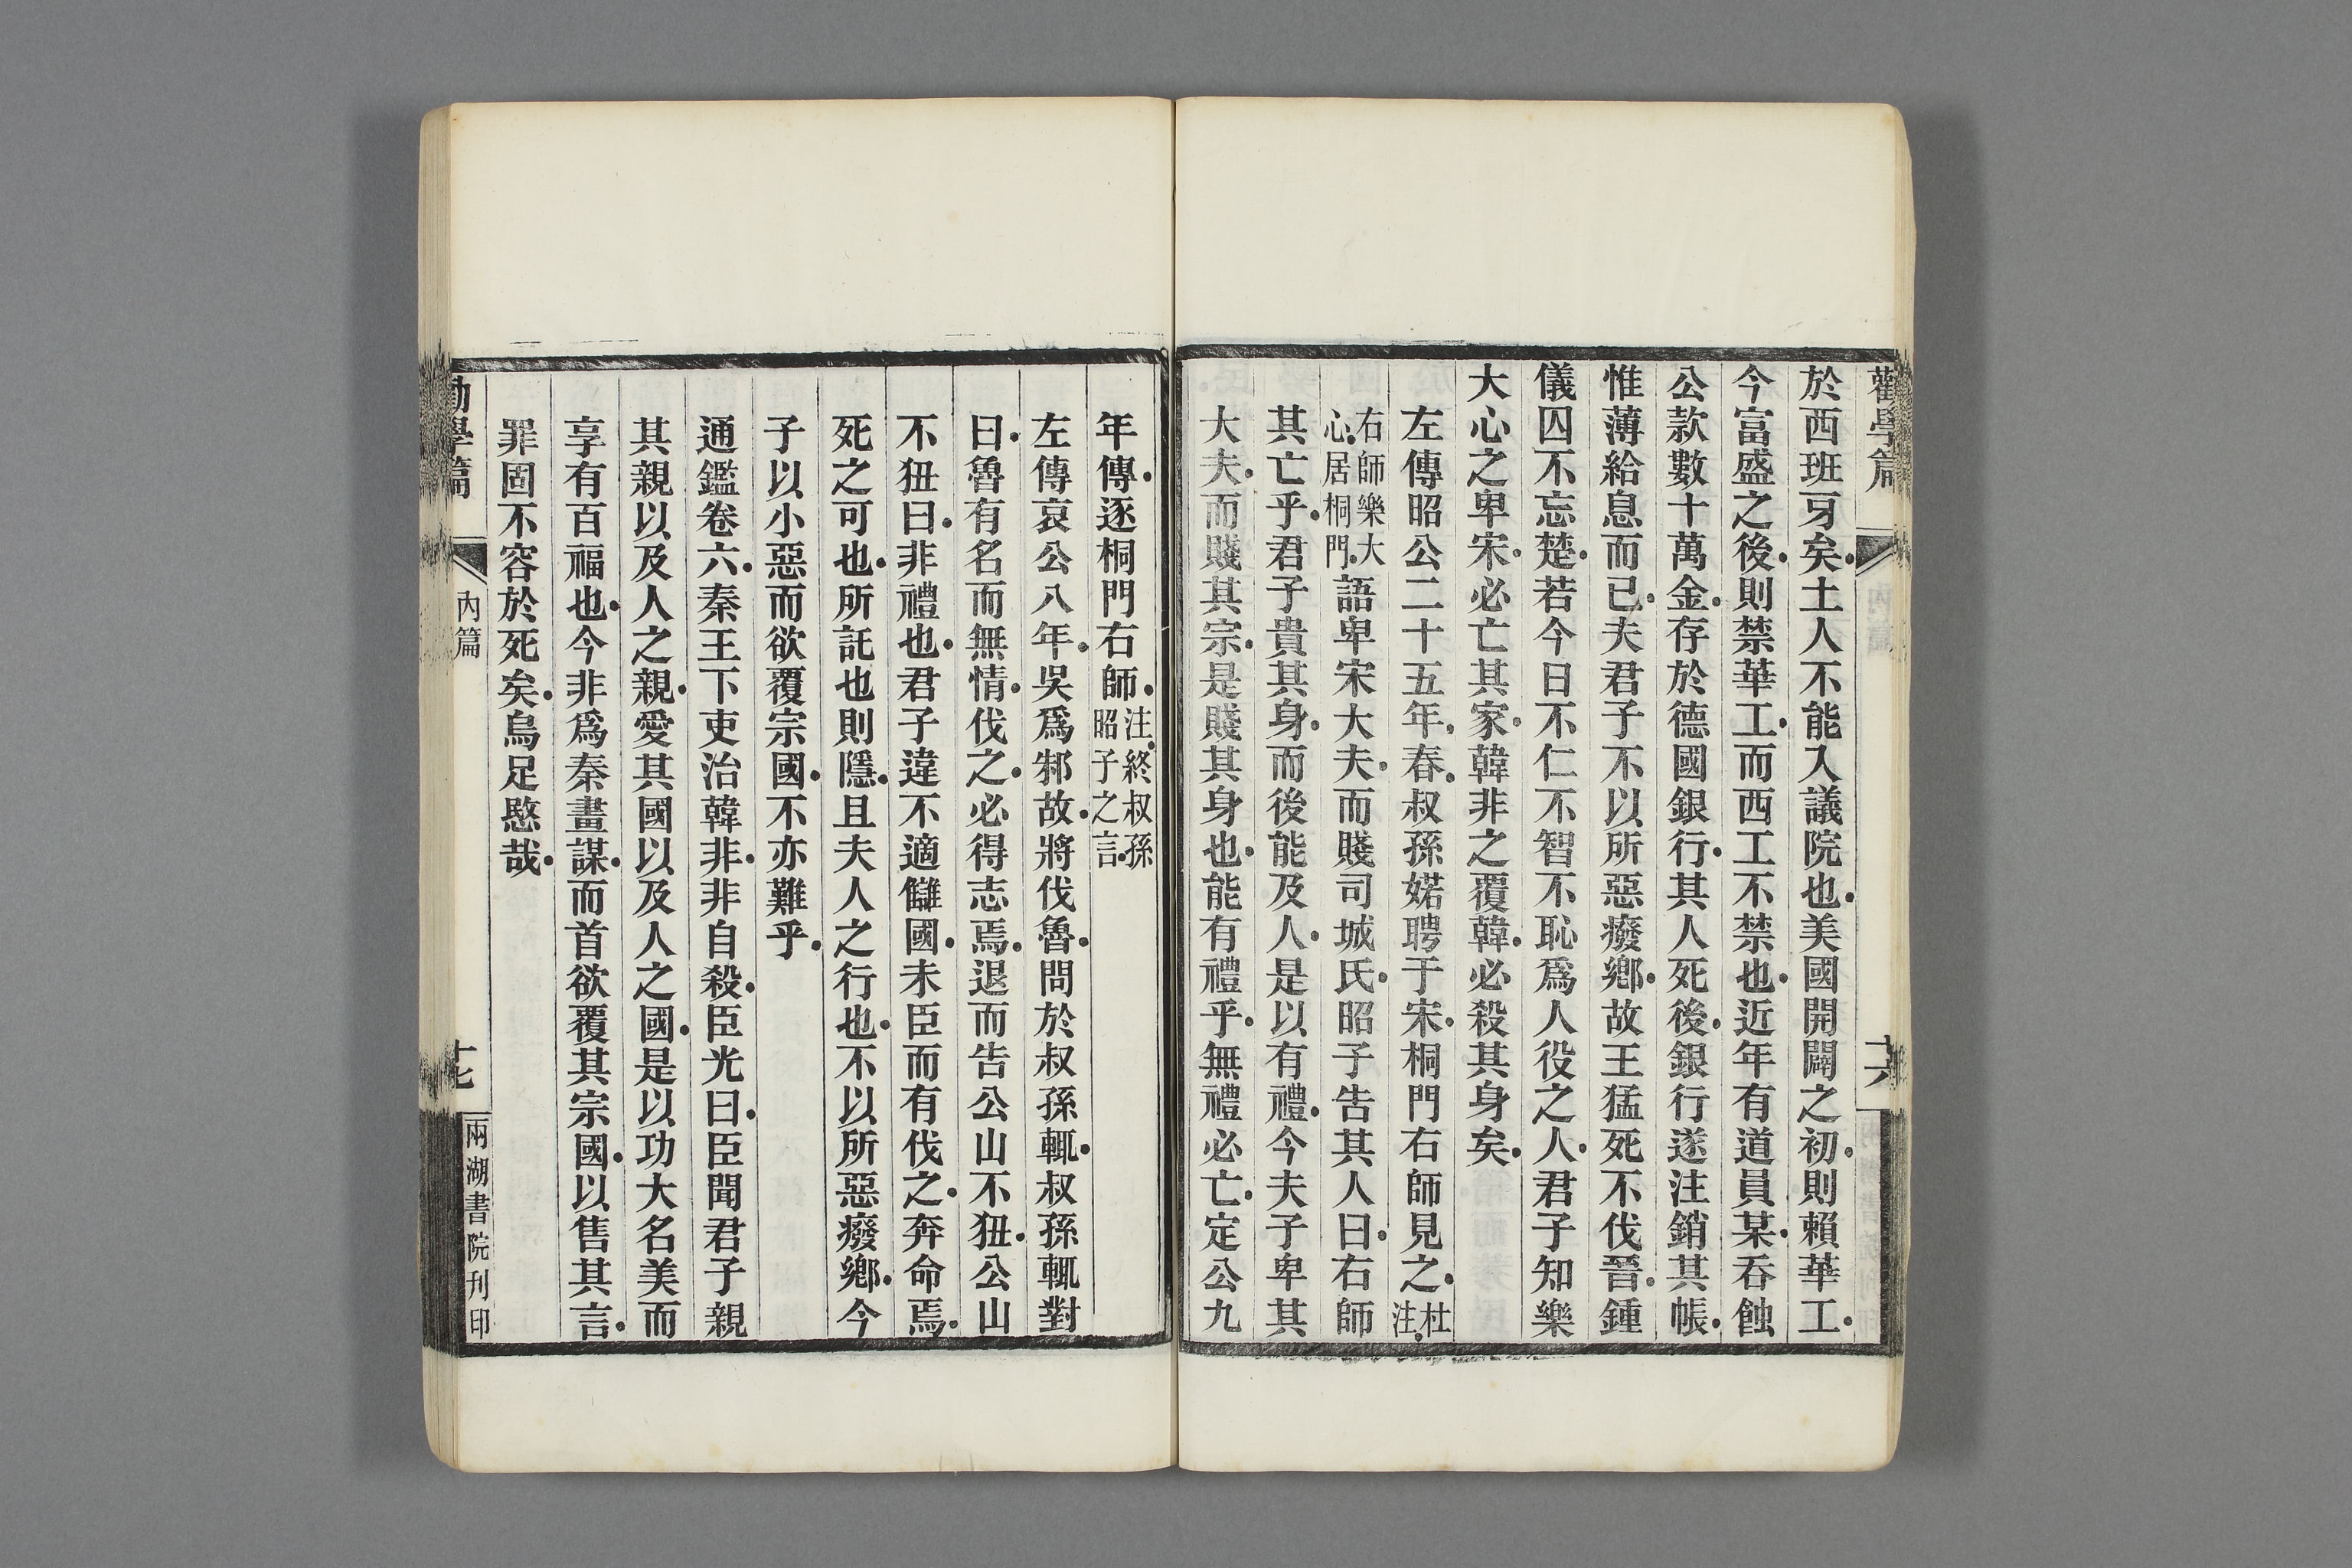 勸學篇
十六
於西班牙矣土人不能入議院也美國開闢之初則賴華工
今富盛之後則禁華工而西工不禁也近年有道員某吞蝕
公款數十萬金存於德國銀行其人死後銀行遂注銷其帳
惟薄給息而已夫君子不以所惡廢鄉故王猛死不伐晉鍾
儀囚不忘楚若今日不仁不智不恥爲人役之人君子知樂
大心之卑宋必亡其家韓非之覆韓必殺其身矣
左傳昭公二十五年春叔孫婼聘于宋桐門右師見之杜注
右師樂大心居桐門語卑宋大夫而賤司城氏昭子告其人曰右師
其亡乎君子貴其身而後能及人是以有禮今夫子卑其
大夫而賤其宗是賤其身也能有禮乎無禮必亡定公九
年傳逐桐門右師注終叔孫昭子之言
左傳哀公八年吳爲邾故將伐魯問於叔孫輒叔孫輒對
曰魯有名而無情伐之必得志焉退而告公山不狃公山
不狃曰非禮也君子違不適讎國未臣而有伐之奔命焉
死之可也所託也則隱且夫人之行也不以所惡廢鄉今
子以小惡而欲覆宗國不亦難乎
通鑑卷六秦王下吏治韓非非自殺臣光曰臣聞君子親
其親以及人之親愛其國以及人之國是以功大名美而
享有百福也今非爲秦畫謀而首欲覆其宗國以售其言
罪固不容於死矣烏足愍哉
勸學篇
內篇
十七
兩湖書院刊印